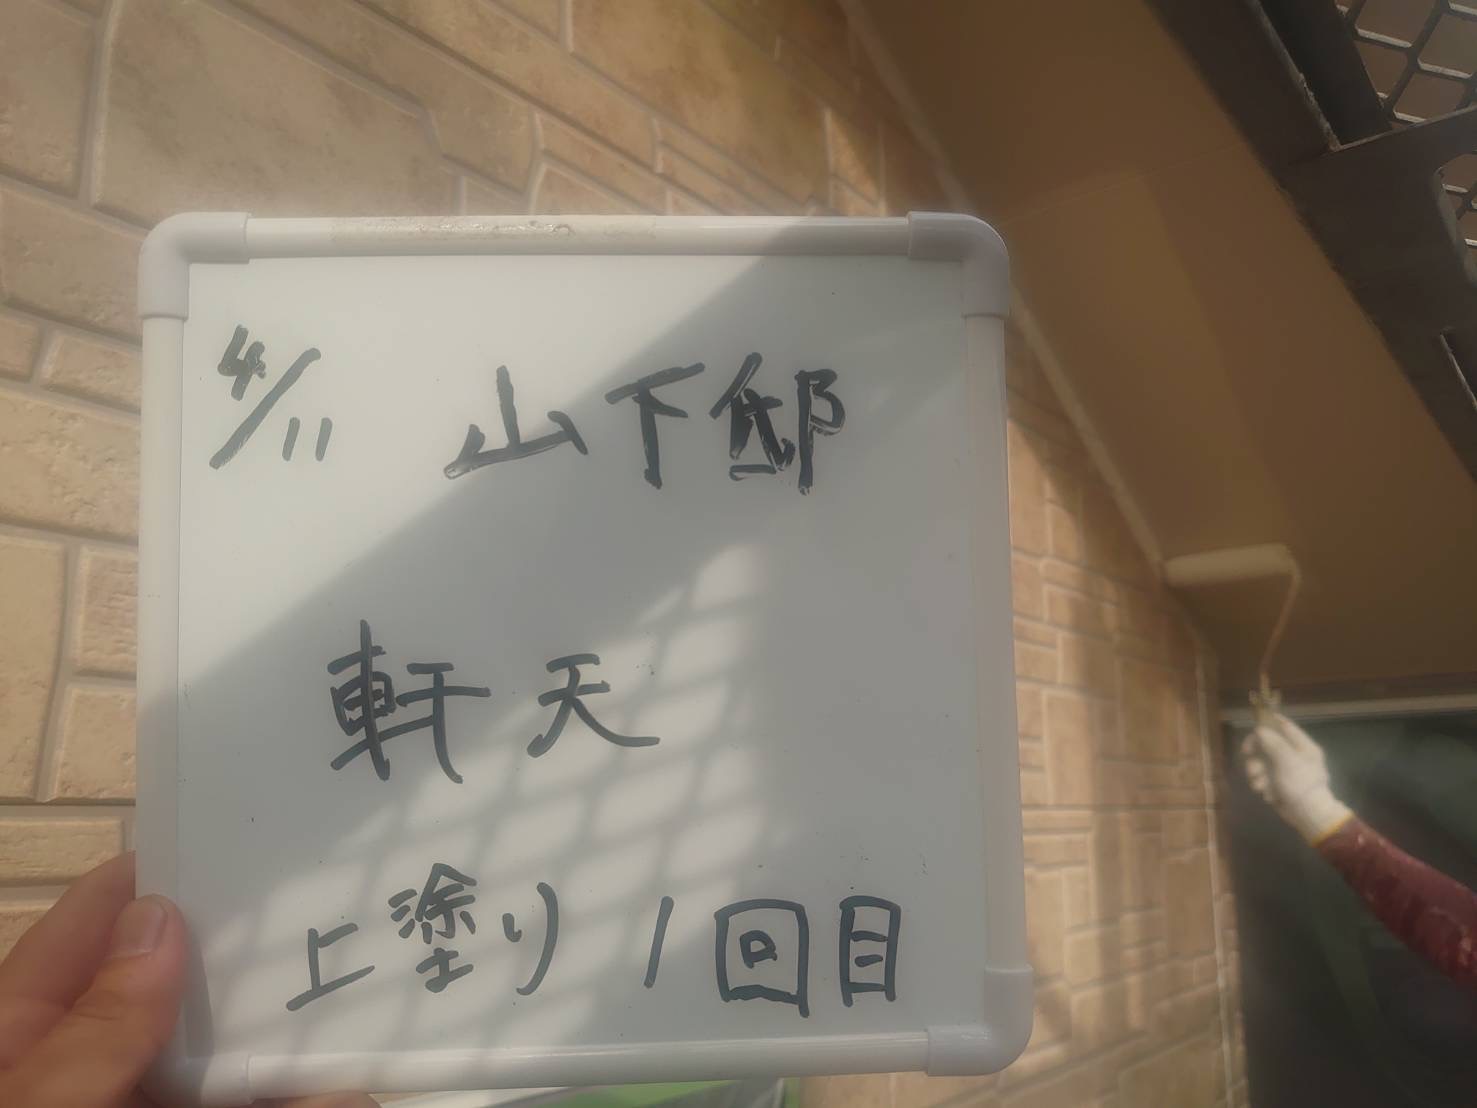 4/11 山下邸
軒天
上塗り1回目